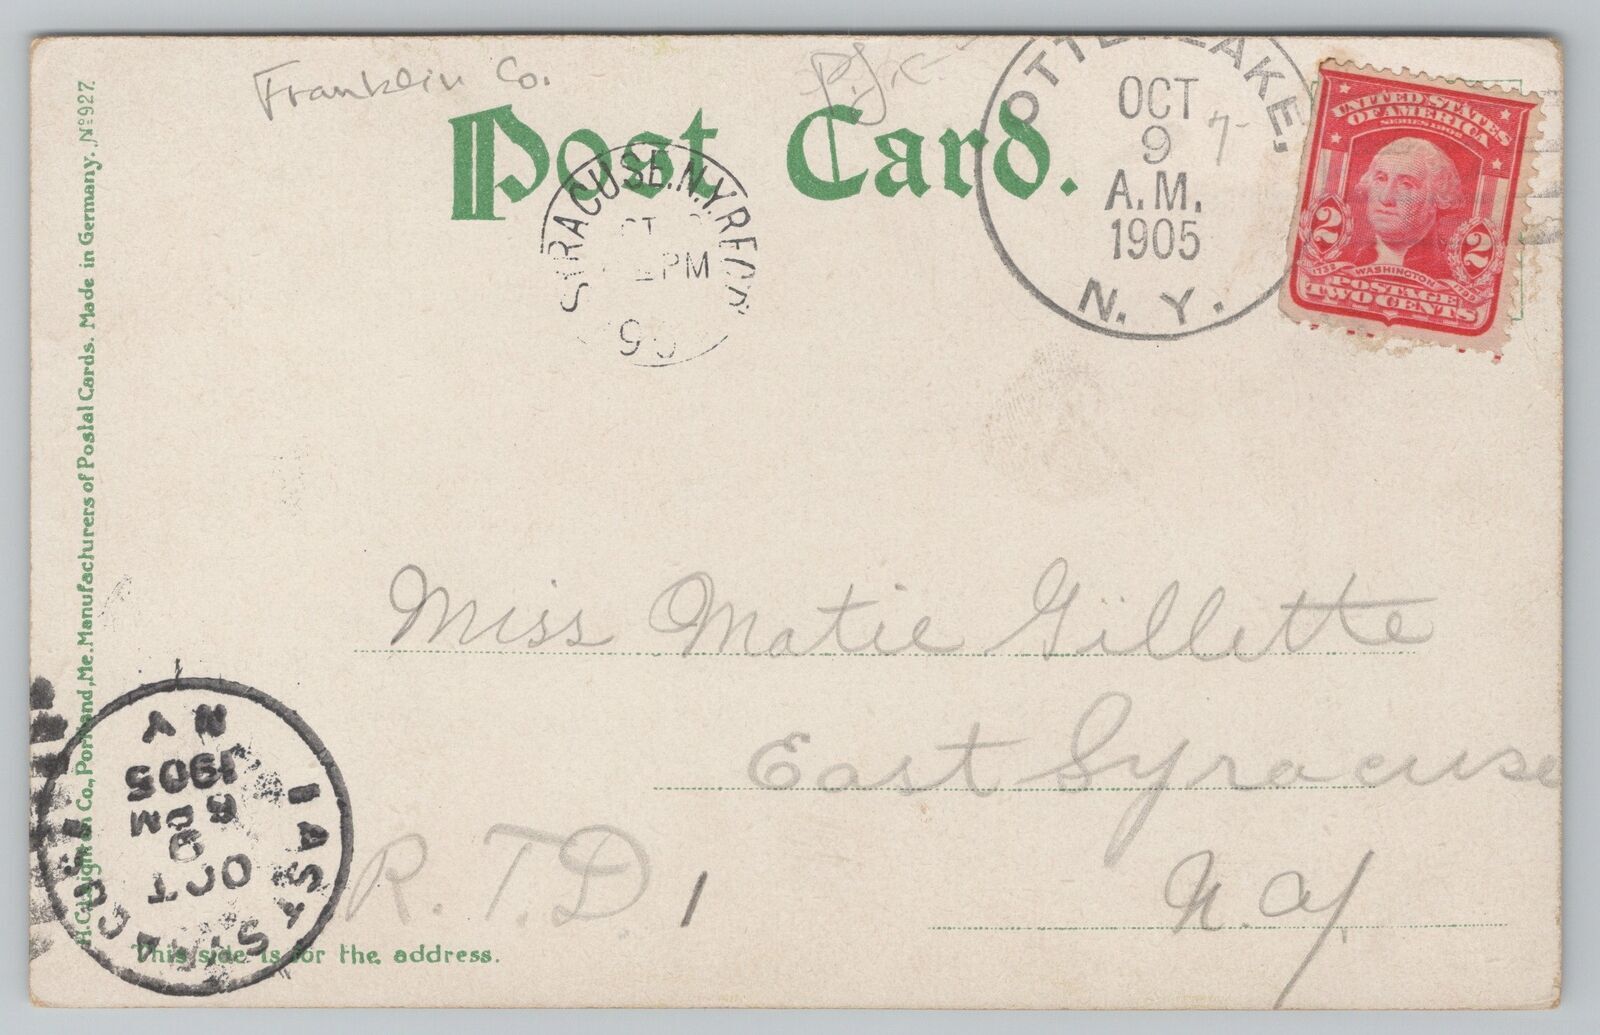 Franklin Co.
Post Card.
OTTER LAKE,
OCT
9 7
A.M.
1905
N. Y.
UNITED STATES
OF AMERICA
SERIES 1902
2 2
1732 WASHINGTON 1799
POSTAGE
TWO CENTS
SYRACUSE. N.Y. REC'D
PM
Miss Matie Gillette
East Syracuse
R. F. D. 1
N. Y.
This side is for the address.
EAST SYRACUSE
OCT
9
8 PM
1905
N Y
H. C. Leighton Co., Portland, Me. Manufacturers of Postal Cards. Made in Germany. No 927.